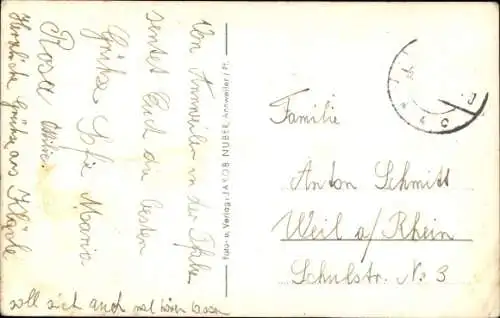 Von Annweiler in der Pfalz
sentet Euch die besten
Grüße Sofie Maria
Rosa
Herzliche Grüße aus
soll sich auch mal hören lassen
Foto- u. Verlag: JAKOB NUBER, Annweiler / Pf.
Familie
Anton Schmitt
Weil a/Rhein
Schulstr. No 3